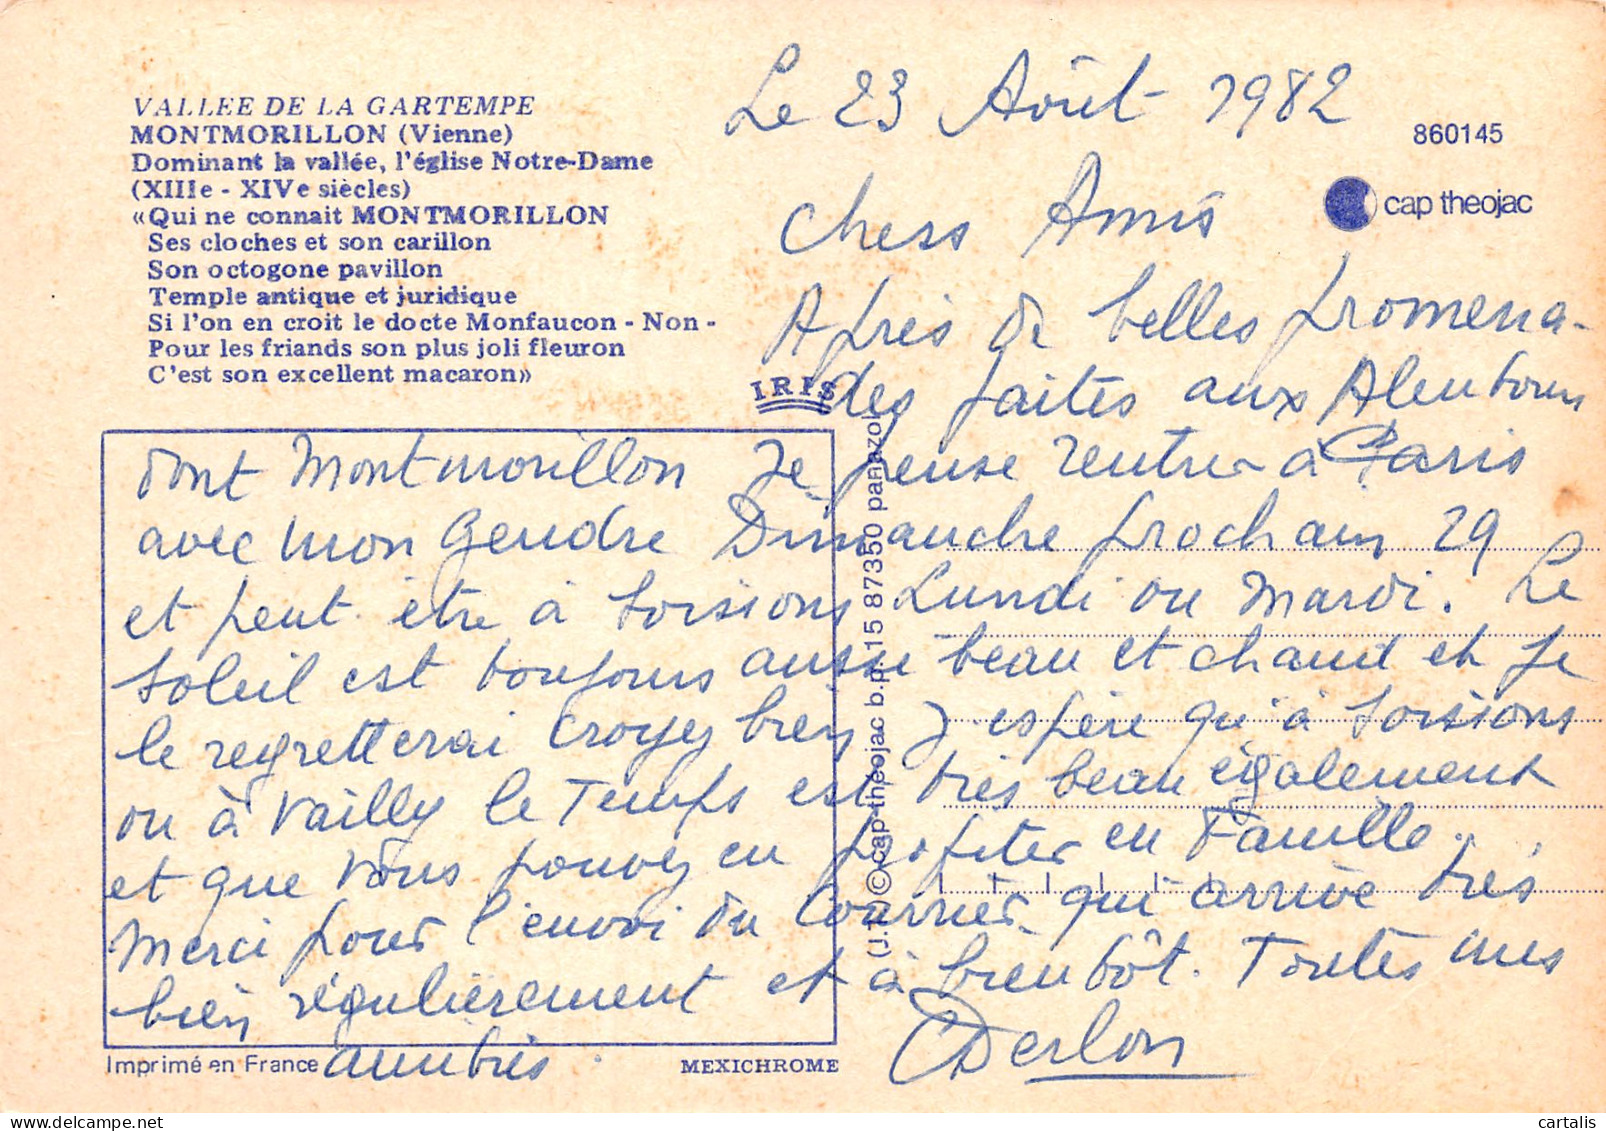 VALLEE DE LA GARTEMPE
MONTMORILLON (Vienne)
Dominant la vallée, l'église Notre-Dame
(XIIIe - XIVe siècles)
«Qui ne connait MONTMORILLON
Ses cloches et son carillon
Son octogone pavillon
Temple antique et juridique
Si l'on en croit le docte Monfaucon - Non -
Pour les friands son plus joli fleuron
C'est son excellent macaron»
IRIS
860145
cap theojac
Le 23 Août 1982
Chers Amis
Après de belles promena-
des faites aux Alentours
dont Montmorillon Je pense rentrer à Paris
avec mon Gendre Dimanche prochain 29
et peut être à Soissons Lundi ou Mardi. Le
Soleil est toujours aussi beau et chaud et Je
le regretterai Croyez bien J'espère qu'à Soissons
ou à Vailly le Temps est très beau également
et que Vous pouvez en profiter en Famille.
Merci pour l'envoi du Courrier qui arrive très
bien régulièrement et à bientôt. Toutes mes
amitiés.
CDerlon
(J.T.) © cap-theojac b.p. 15 87350 panazol
Imprimé en France
MEXICHROME
cartalis